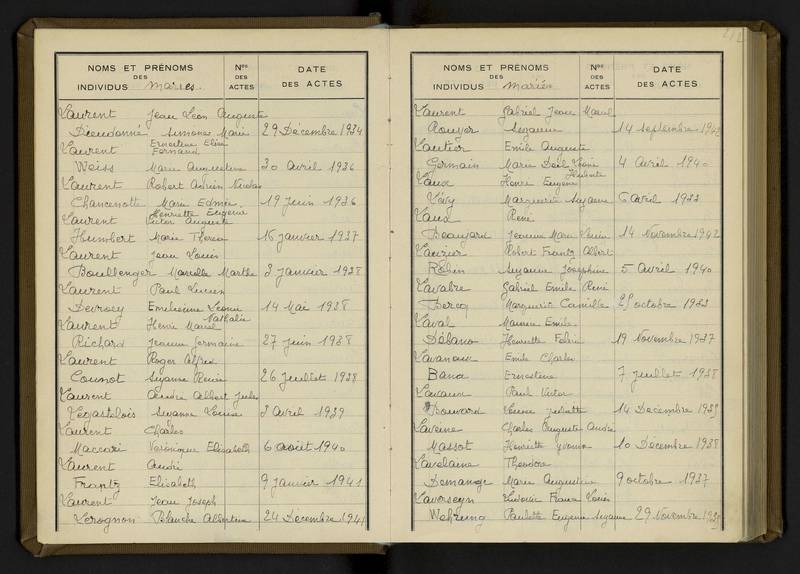 NOMS ET PRÉNOMS DES INDIVIDUS Mariés. Nos DES ACTES DATE DES ACTES
Laurent Jean Léon Auguste
Dieudonné Simone Marie 29 Décembre 1934
Laurent Ernestine Elise Fernand
Weiss Marie Augustine 30 Avril 1936
Laurent Robert Adrien Nicolas
Chancenotte Marie Edmée 19 Juin 1936
Laurent Henriette Eugénie Victor Auguste
Humbert Marie Thérèse 16 janvier 1937
Laurent Jean Louis
Boullenger Marcelle Marthe 3 Janvier 1938
Laurent Paul Lucien
Devrosey Léonie Nathalie 14 Mai 1938
Laurent Henri Marcel
Richard Jeanne Germaine 27 Juin 1938
Laurent Roger Alfred
Counot Suzanne Renée 26 Juillet 1938
Laurent André Albert Jules
Legastelois Suzanne Louise 3 Avril 1939
Laurent Charles
Maccari Véronique Elisabeth 6 août 1940
Laurent André
Frantz Elisabeth 9 Janvier 1941
Laurent Jean Joseph
Lerognon Blanche Albertine 24 Décembre 1941
NOMS ET PRÉNOMS DES INDIVIDUS Mariés Nos DES ACTES DATE DES ACTES
Laurent Gabriel Jean Marcel
Rouyer Suzanne 14 septembre 1942
Lautier Emile Auguste
Germain Marie 4 Avril 1940
Laux Henri Eugène
Lévy Marguerite Suzanne 6 Avril 1933
Laux René
Beauyard Jeanne Marie 14 Novembre 1942
Lauzier Robert Frantz Albert
Robin Suzanne Joséphine 5 Avril 1940
Lavabre Gabriel Emile René
Bercq Marguerite Camille octobre 1933
Laval Maurice Emile
Débano Henriette 19 Novembre 1937
Lavanoux Emile Charles
Bana Ernestine 7 Juillet 1938
Lavaux Paul Victor
Bouvard Juliette 14 Décembre 1939
Laveine Charles Auguste André
Massot Henriette Yvonne 10 Décembre 1938
Lavelaine Théodore
Demange Marie Augustine 9 octobre 1937
Ludovic Franz Louis
Wehrung Paulette Eugénie Suzanne 29 Novembre 1939